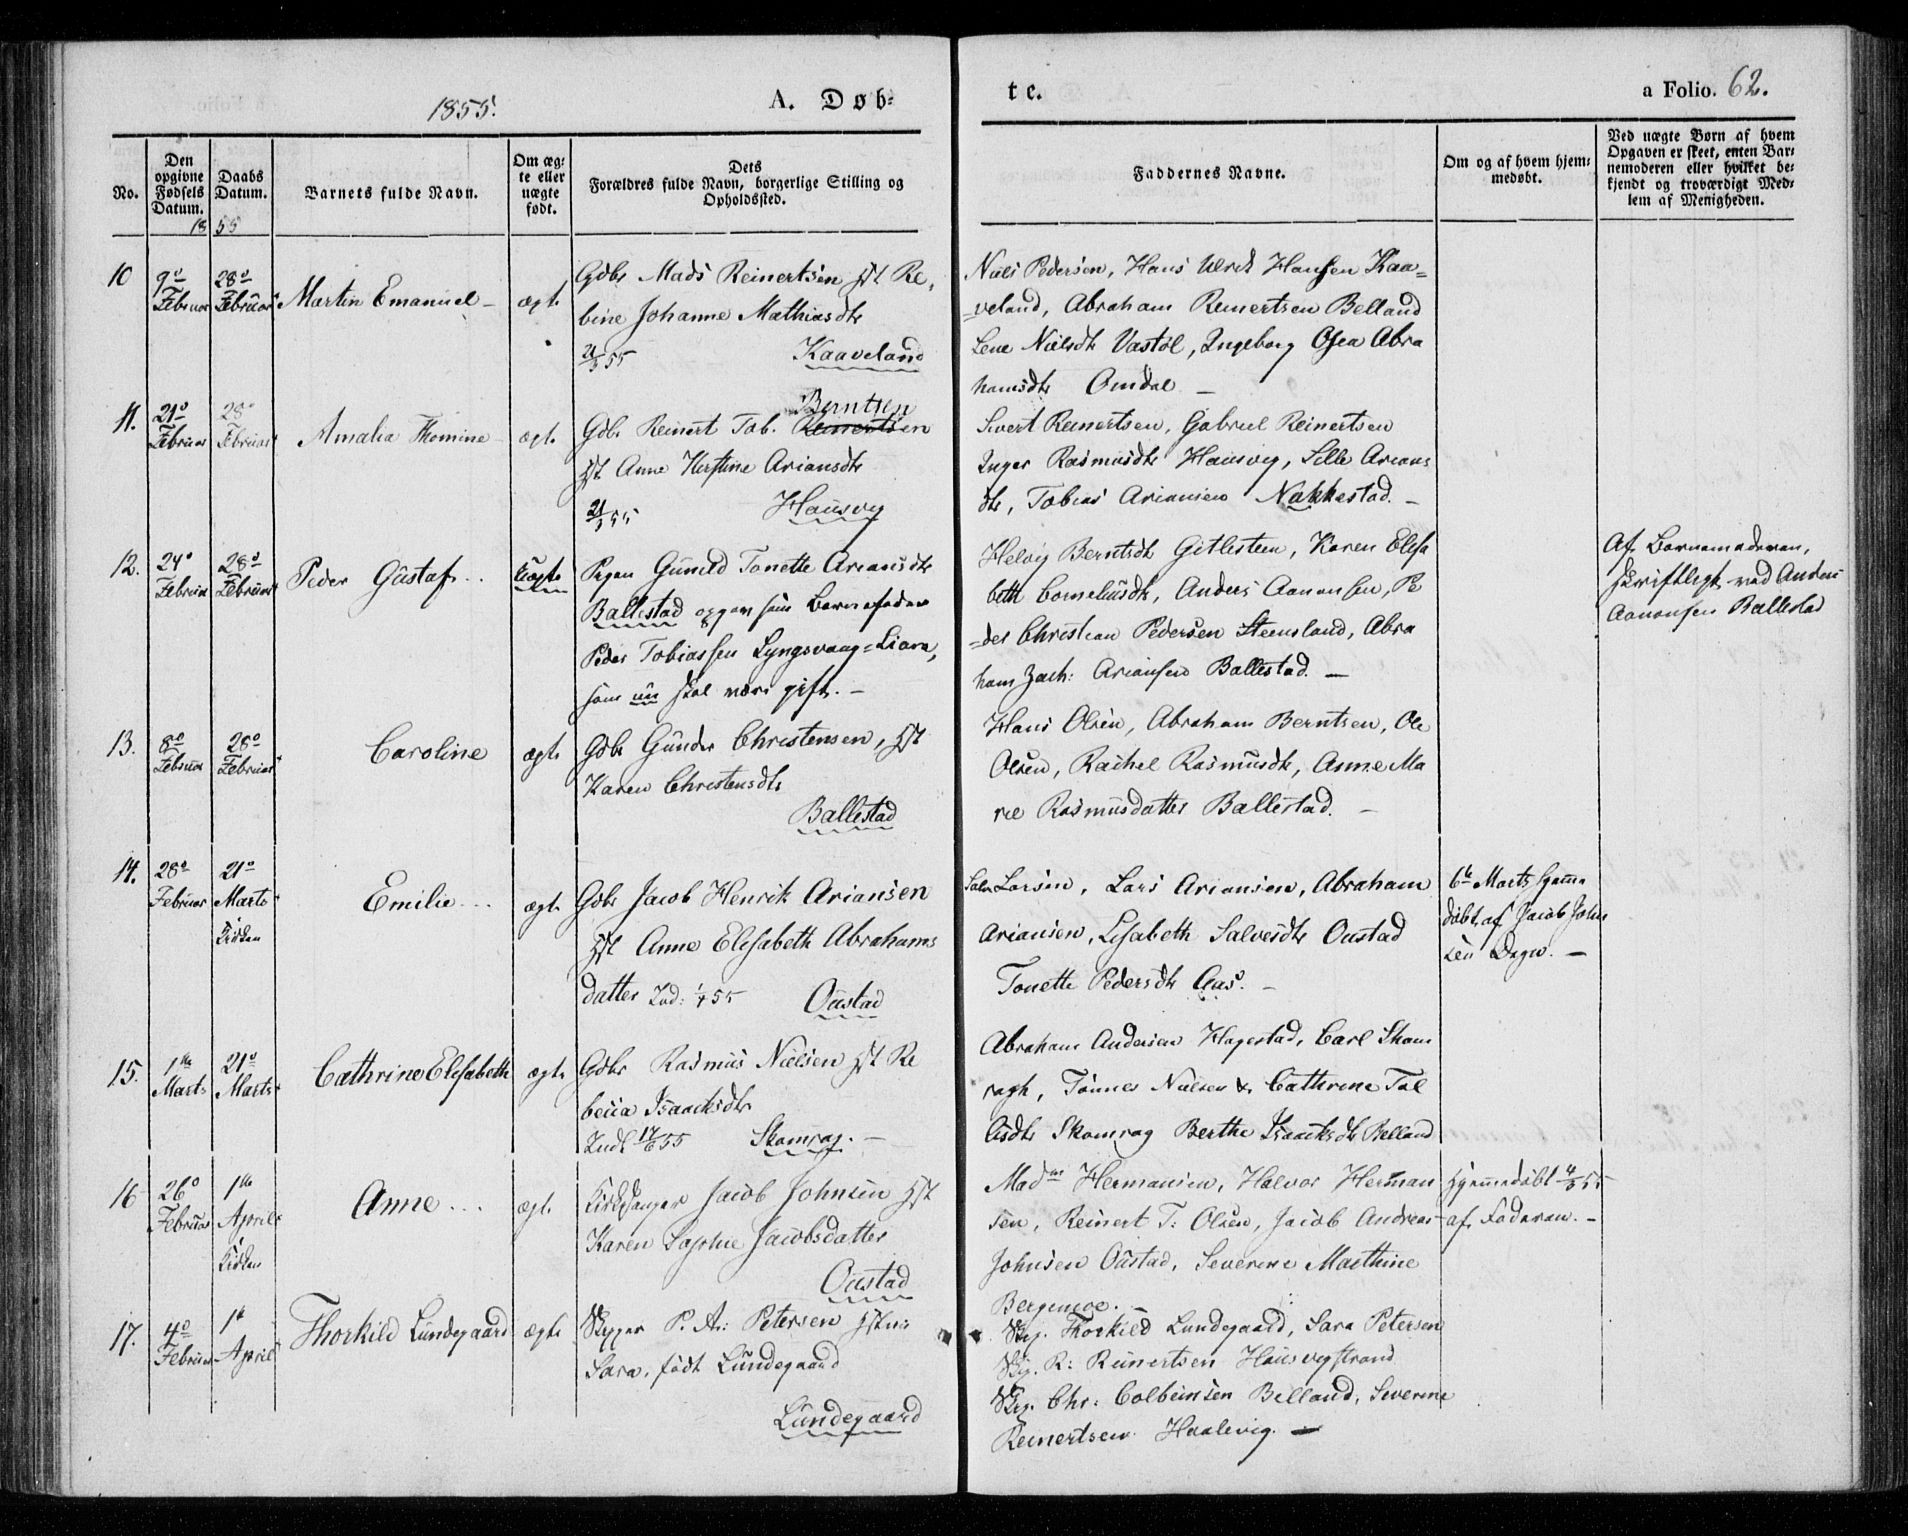 1855.
A. Døb=
te.
a Folio. 62.
No.
Den
opgivne
Fødsels
Datum.
Daabs
Datum.
18 55
Barnets fulde Navn.
Om æg-
te eller
uægte
født.
Dets
Forældres fulde Navn, borgerlige Stilling og
Opholdssted.
Faddernes Navne.
Om og af hvem hjem-
medøbt.
Ved uægte Børn af hvem
Opgaven er skeet, enten Bar-
nemoderen eller hvilket be-
kjendt og troværdigt Med-
lem af Menigheden.
10
9de
Februar
28de
Februar
Martin Emanuel
ægte
Gdbr Mads Reinertsen Hst Re
bine Johanne Mathiasdtr
55
Kaaveland
Niels Pedersen, Hans Ulrik Hansen Kaa=
=veland, Abraham Reinertsen Belland
Lene Nielsdtr Vastøl, Ingeborg Osea Abra
hamsdtr Omdal
11.
21de
Februar
28de
Februar
Amalia Thomine
ægte
Berntsen
Gdbr Reinert Tob. Reinertsen
Hst Anne Kirstine Ariansdtr
55
Hausvig
Sivert Reinertsen, Gabriel Reinertsen
Inger Rasmusdtr Hausvig, Sille Arians
dtr, Tobias Ariansen Nakkestad.
12.
24de
Februar
28de
Februar
Peder Gustaf
Uægte
Pigen Gunild Tonette Ariansdtr
Ballestad opgav som Barnefader
Peder Tobiassen Lyngsvaag=Liane,
som nu skal være gift.
Helvig Berntsdtr Gitlesteen, Karen Elisa
beth Corneliusdtr, Anders Aanonsen, Pe
=der Christian Pedersen Steensland, Abra
ham Zach: Ariansen Ballestad.
Af Barnemoderen,
skriftligt ved Anders
Aanonsen Ballestad
13.
8de
Februar
28de
Februar
Caroline
ægte
Gdbr Gunder Christensen, Hst
Karen Christensdtr
Ballestad
Hans Olsen, Abraham Berntsen, Ole
Olsen, Rachel Rasmusdtr, Anne Ma
rie Rasmusdatter Ballestad.
14.
28de
Februar
21de
Marts
Kirken
Emilie
ægte
Gdbr Jacob Henrik Ariansen
Hst Anne Elisabeth Abrahams
datter Ind: 1/4 55 Oustad
Salv Larsen, Lars Ariansen, Abraham
Ariansen, Lisabeth Salvesdtr Oustad
Tonette Pedersdtr Aas.
6te Marts hjemme
døbt af Jacob John
sen
15.
1ste
Marts
21de
Marts
Cathrine Elisabeth
ægte
Gdbr Rasmus Nielsen Hst Re
becca Isaachsdtr
Indl 17/6 55 Skomrag.
Abraham Andersen Hagestad, Carl Skom
ragh, Tønnes Nielsen & Cathrine Tol
lisdtr Skomrag Berthe Isaachsdtr Belland
16
26de
Februar
1ste
April
Kirken
Anne
ægte
Kirkesanger Jacob Johnsen Hst
Karen Sophie Jacobsdatter
Oustad
Madm Hermansen, Halvor Herman
sen, Reinert T: Olsen, Jacob Andreas
Johnsen Oustad, Severine Marthine
Bergensoe.
hjemmedøbt 4/3 55
af Faderen.
17.
4de
Februar
1ste
April
Thorkild Lundegaard
ægte
Skipper P. A: Petersen Hstru
Sara, født Lundegaard
Lundegaard
Skp. Thorkild Lundegaard, Sara Petersen
Skp. R: Reinertsen Hausvigstrand
Skp. Chr: Colbeinsen Belland, Severine
Reinertsen Haalevig.